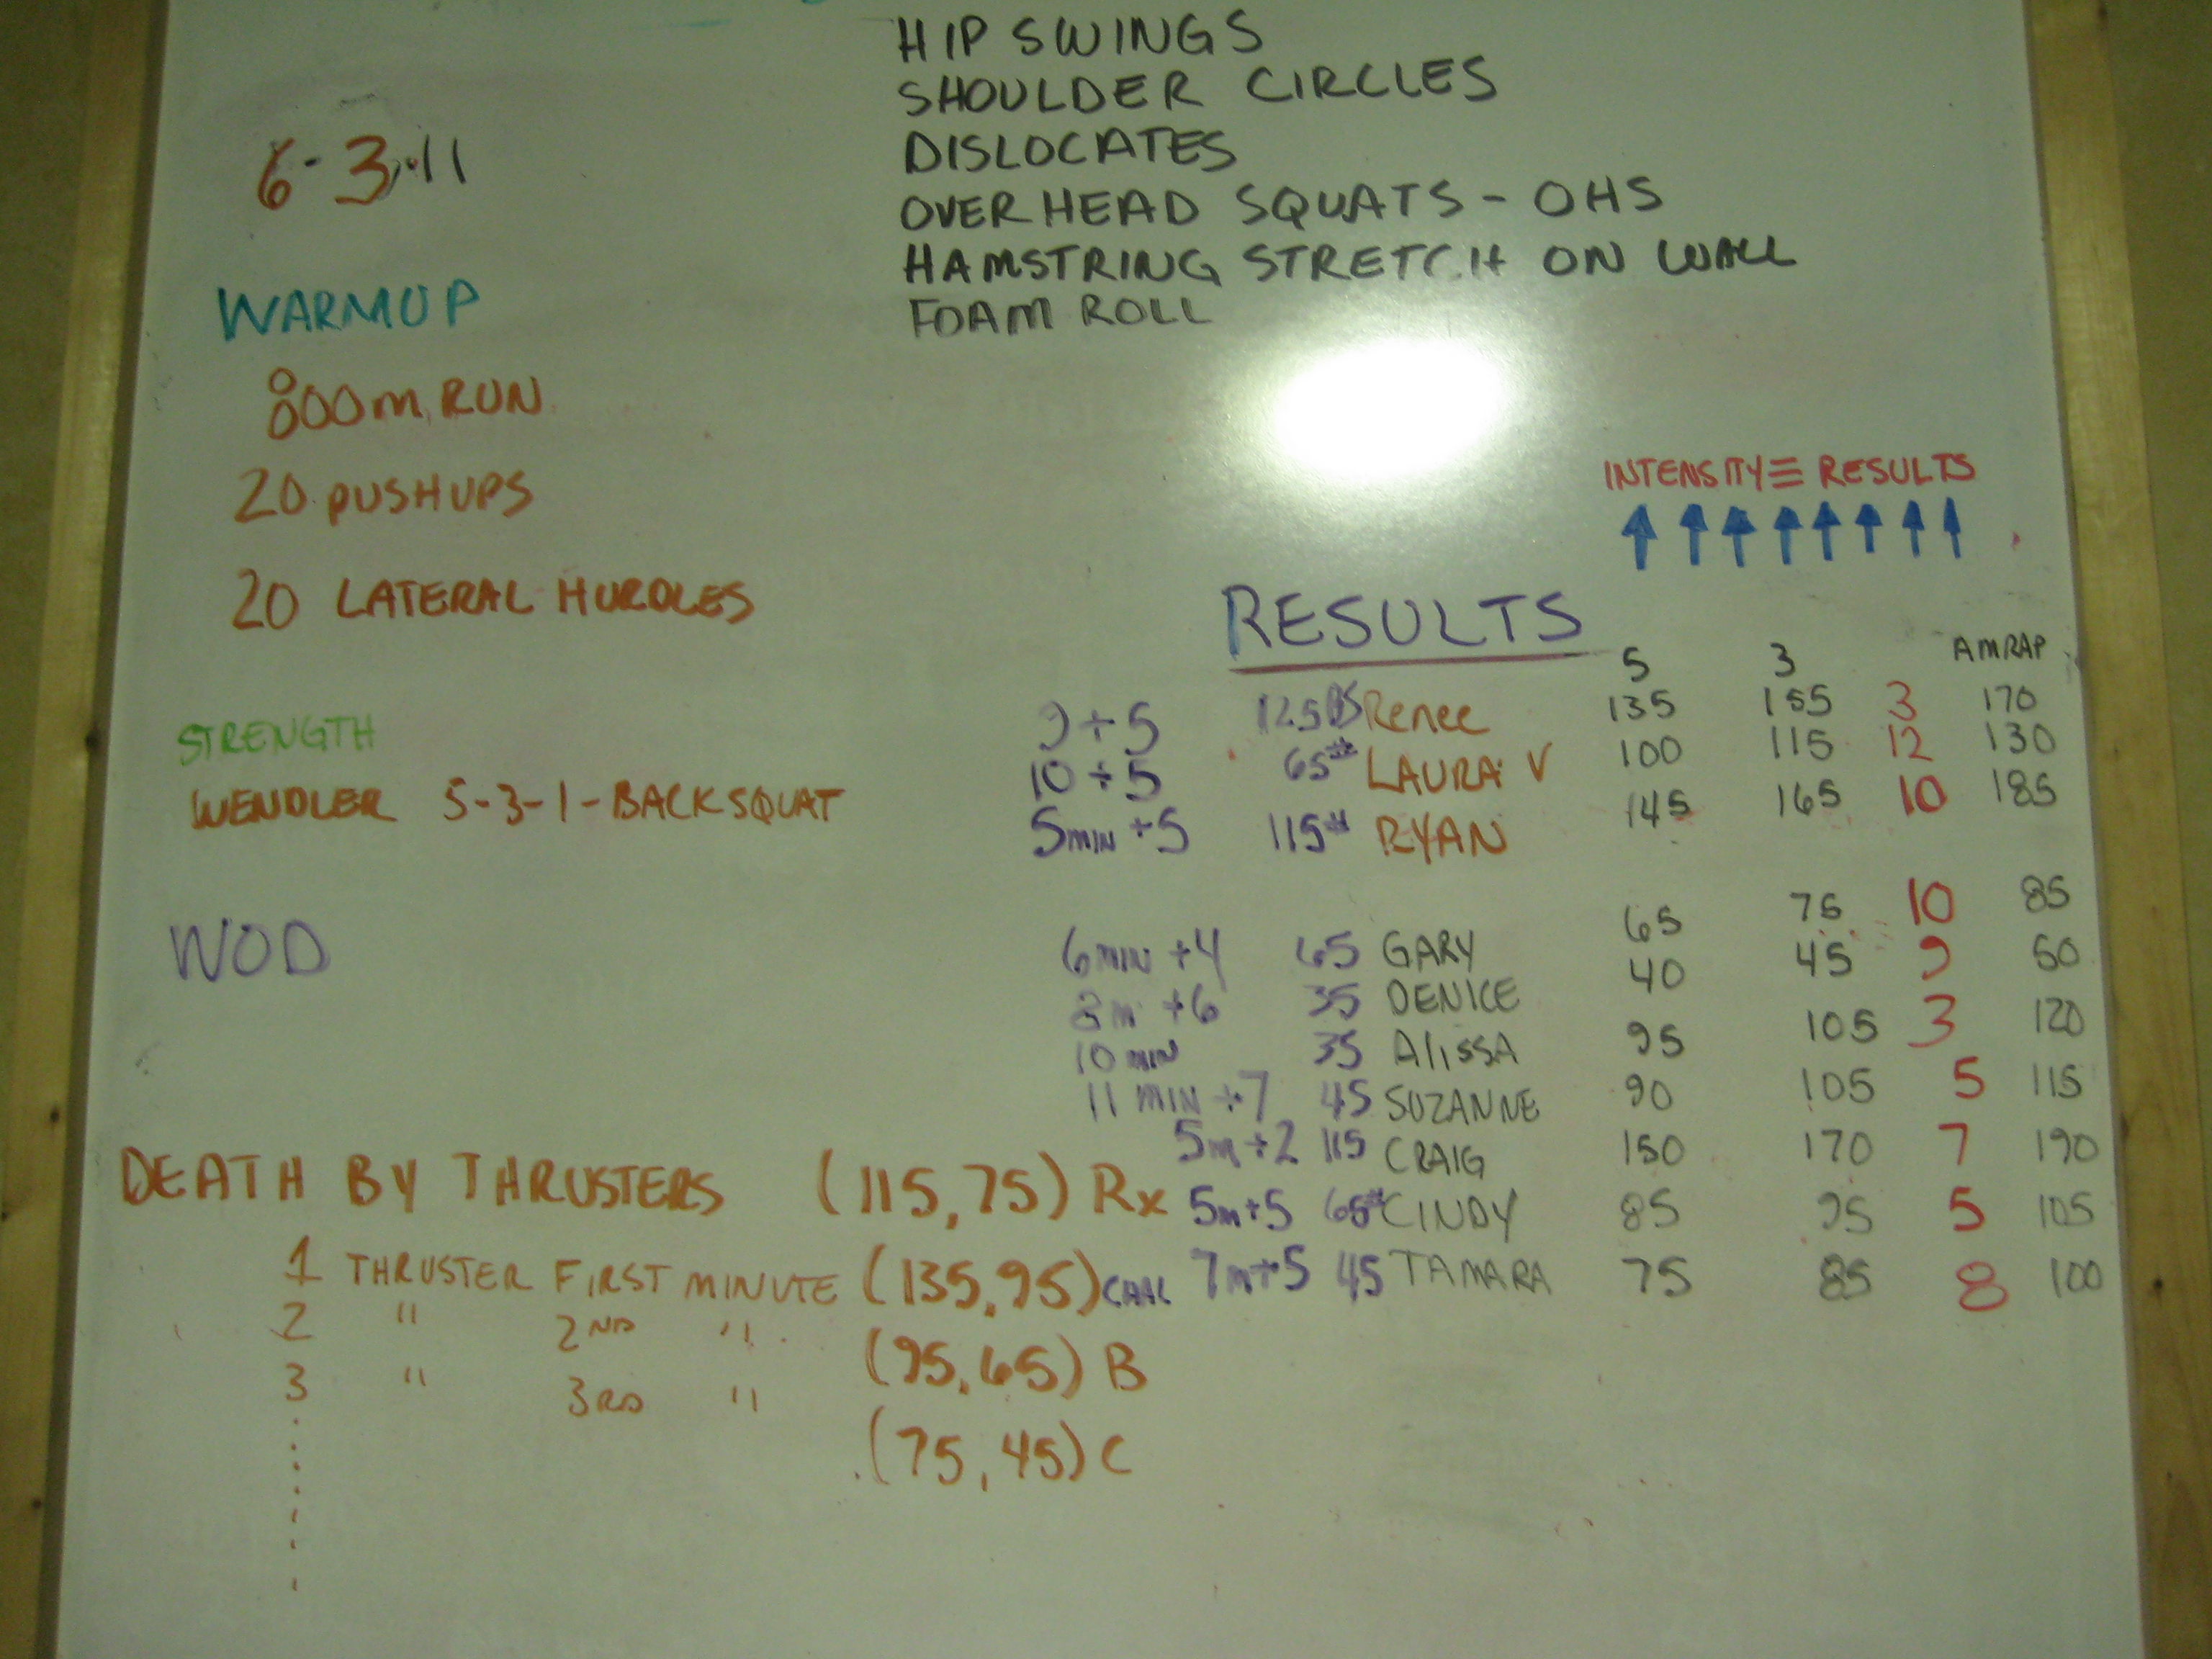 HIP SWINGS
SHOULDER CIRCLES
DISLOCATES
OVERHEAD SQUATS - OHS
HAMSTRING STRETCH ON WALL
FOAM ROLL
6-3-11
WARMUP
800m RUN
20 PUSHUPS
20 LATERAL HURDLES
STRENGTH
WENDLER 5-3-1-BACKSQUAT
WOD
DEATH BY THRUSTERS (115,75) Rx
1 THRUSTER FIRST MINUTE (135,95) CHAL
2 " 2ND "
(95,65) B
3 " 3RD "
(75,45) C
INTENSITY ≡ RESULTS
RESULTS
5 3 AMRAP
9+5 125 Renee 135 155 3 170
10+5 65# LAURA V 100 115 12 130
5MIN+5 115# RYAN 145 165 10 185
6MIN+4 65 GARY 65 75 10 85
8m+6 35 DENICE 40 45 9 50
10 MIN 35 AlISSA 95 105 3 120
11 MIN+7 45 SUZANNE 90 105 5 115
5m+2 115 CRAIG 150 170 7 190
5m+5 65# CINDY 85 95 5 105
7m+5 45 TAMARA 75 85 8 100